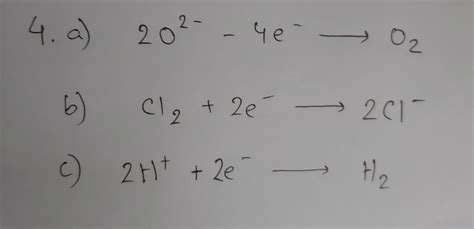 4. a) 2O²⁻ - 4e⁻ ⟶ O₂
b) Cl₂ + 2e⁻ ⟶ 2Cl⁻
c) 2H⁺ + 2e⁻ ⟶ H₂